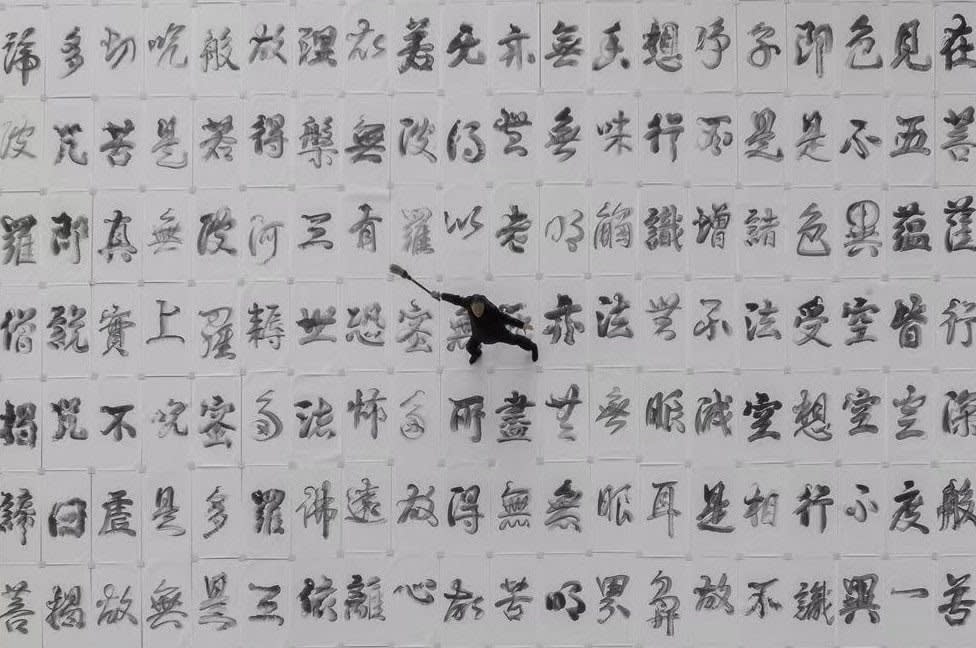 在菩薩行深般若
見五蘊皆空度一
色不異空空不異
即是色受想行識
子是諸法空相不
淨不增不減是故
想行識無眼耳鼻
香味觸法無眼界
無無明亦無無明
亦無老盡無苦
无得以所得故
若波羅蜜多故心
故無有恐怖遠離
涅槃三世諸佛依
故得阿耨多羅三
般若波羅蜜多是
咒是無上咒是無
切苦真實不虛故
多咒即說咒曰揭
諦波羅僧揭諦菩